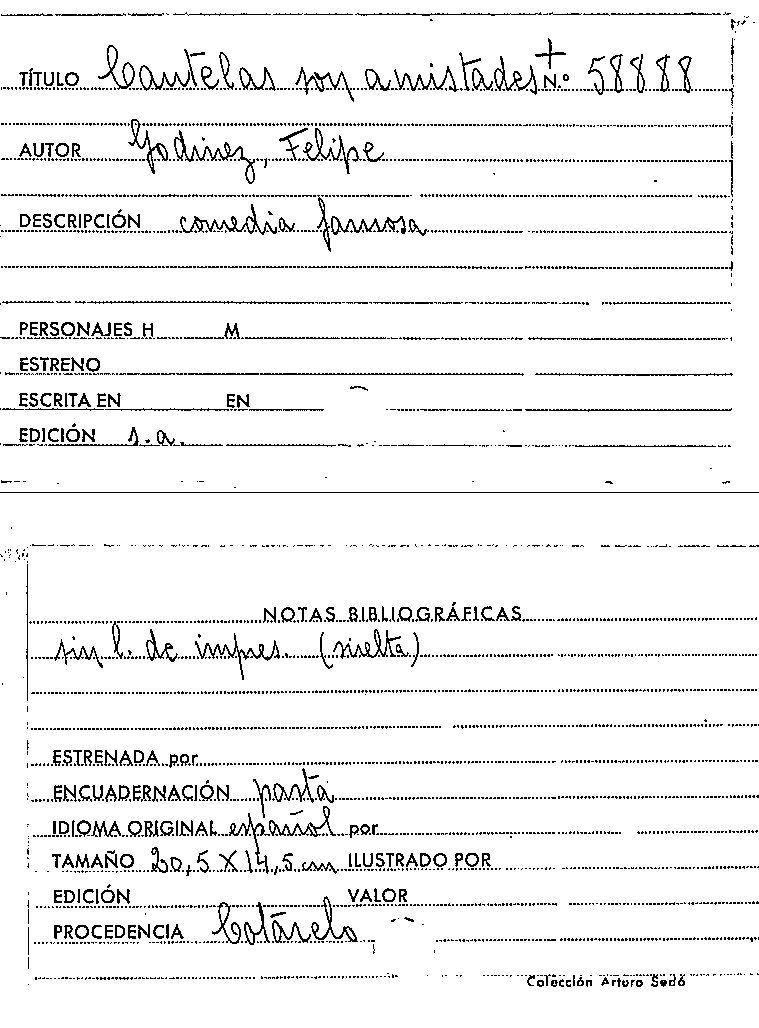 TÍTULO Cautelas son amistades + N.º 58888
AUTOR Godinez, Felipe
DESCRIPCIÓN comedia famosa
PERSONAJES H M
ESTRENO
ESCRITA EN EN
EDICIÓN s.a.
NOTAS BIBLIOGRÁFICAS
sin l. de impres. (suelta)
ESTRENADA por
ENCUADERNACIÓN pasta
IDIOMA ORIGINAL español por
TAMAÑO 20,5 X 14,5 cm ILUSTRADO POR
EDICIÓN VALOR
PROCEDENCIA Cotarelo
Colección Arturo Sedó